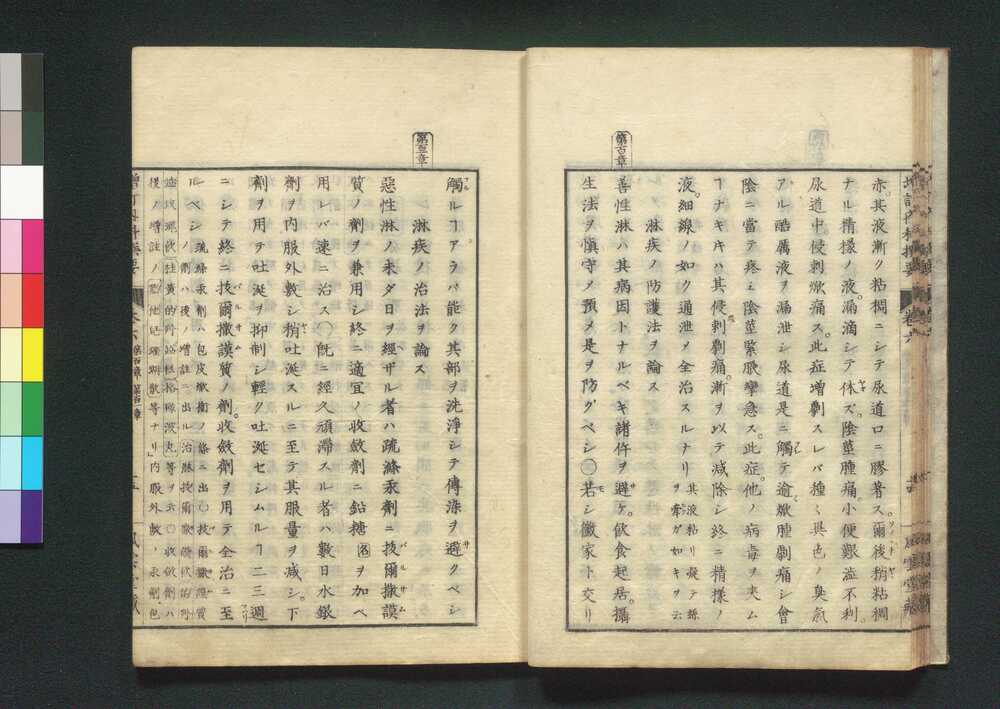 赤。其液漸ク粘稠ニシテ尿道口ニ膠著ス。爾後稍粘稠
ナル精様ノ液。漏滴シテ休ズ。陰莖腫痛。小便艱澁不利。
尿道中侵刺焮痛ス。此症増劇スレバ種々異色ノ臭氣
アル酷厲液ヲ漏泄シ尿道是ニ觸テ逾焮腫劇痛シ會
陰ニ當テ疼ミ陰莖緊脹攣急ス。此症他ノ病毒ヲ夾ム
ヿナキキハ其侵刺劇痛。漸ヲ以テ減除シ終ニ精様ノ
液。細線ノ如ク通泄メ全治スルナリ
其液粘リ凝テ絲ヲ牽ガ如キヲ云
第古章
淋疾ノ防護法ヲ論ス
善性淋ハ其病因トナルベキ諸件ヲ避ケ。飲食起居。攝
生法ヲ愼守メ預メ是ヲ防グベシ〇若シ黴家ト交リ
觸ルヿアラバ能ク其部ヲ洗淨シテ傳染ヲ避クベシ
第壱章
淋疾ノ治法ヲ論ス
惡性淋ノ未ダ日ヲ經ザル者ハ疏滌汞劑ニ拔爾撒謨
質ノ劑ヲ兼用シ終ニ適宜ノ收斂劑ニ鉛糖名ヲ加ヘ
用レバ速ニ治ス〇既ニ經久頑滯スル者ハ數日水銀
劑ヲ内服外敷シ稍吐涎スルニ至テ其服量ヲ減シ。下
劑ヲ用テ吐涎ヲ抑制シ輕ク吐涎セシムルヿ二三週
ニシテ終ニ拔爾撒謨質ノ劑。收斂劑ヲ用テ全治ニ至
ルベシ
疏滌汞劑ハ包皮焮衝ノ條ニ出〇拔爾撒謨質
ノ劑ハ後ノ増註ニ出ル
内服外敷ノ汞劑